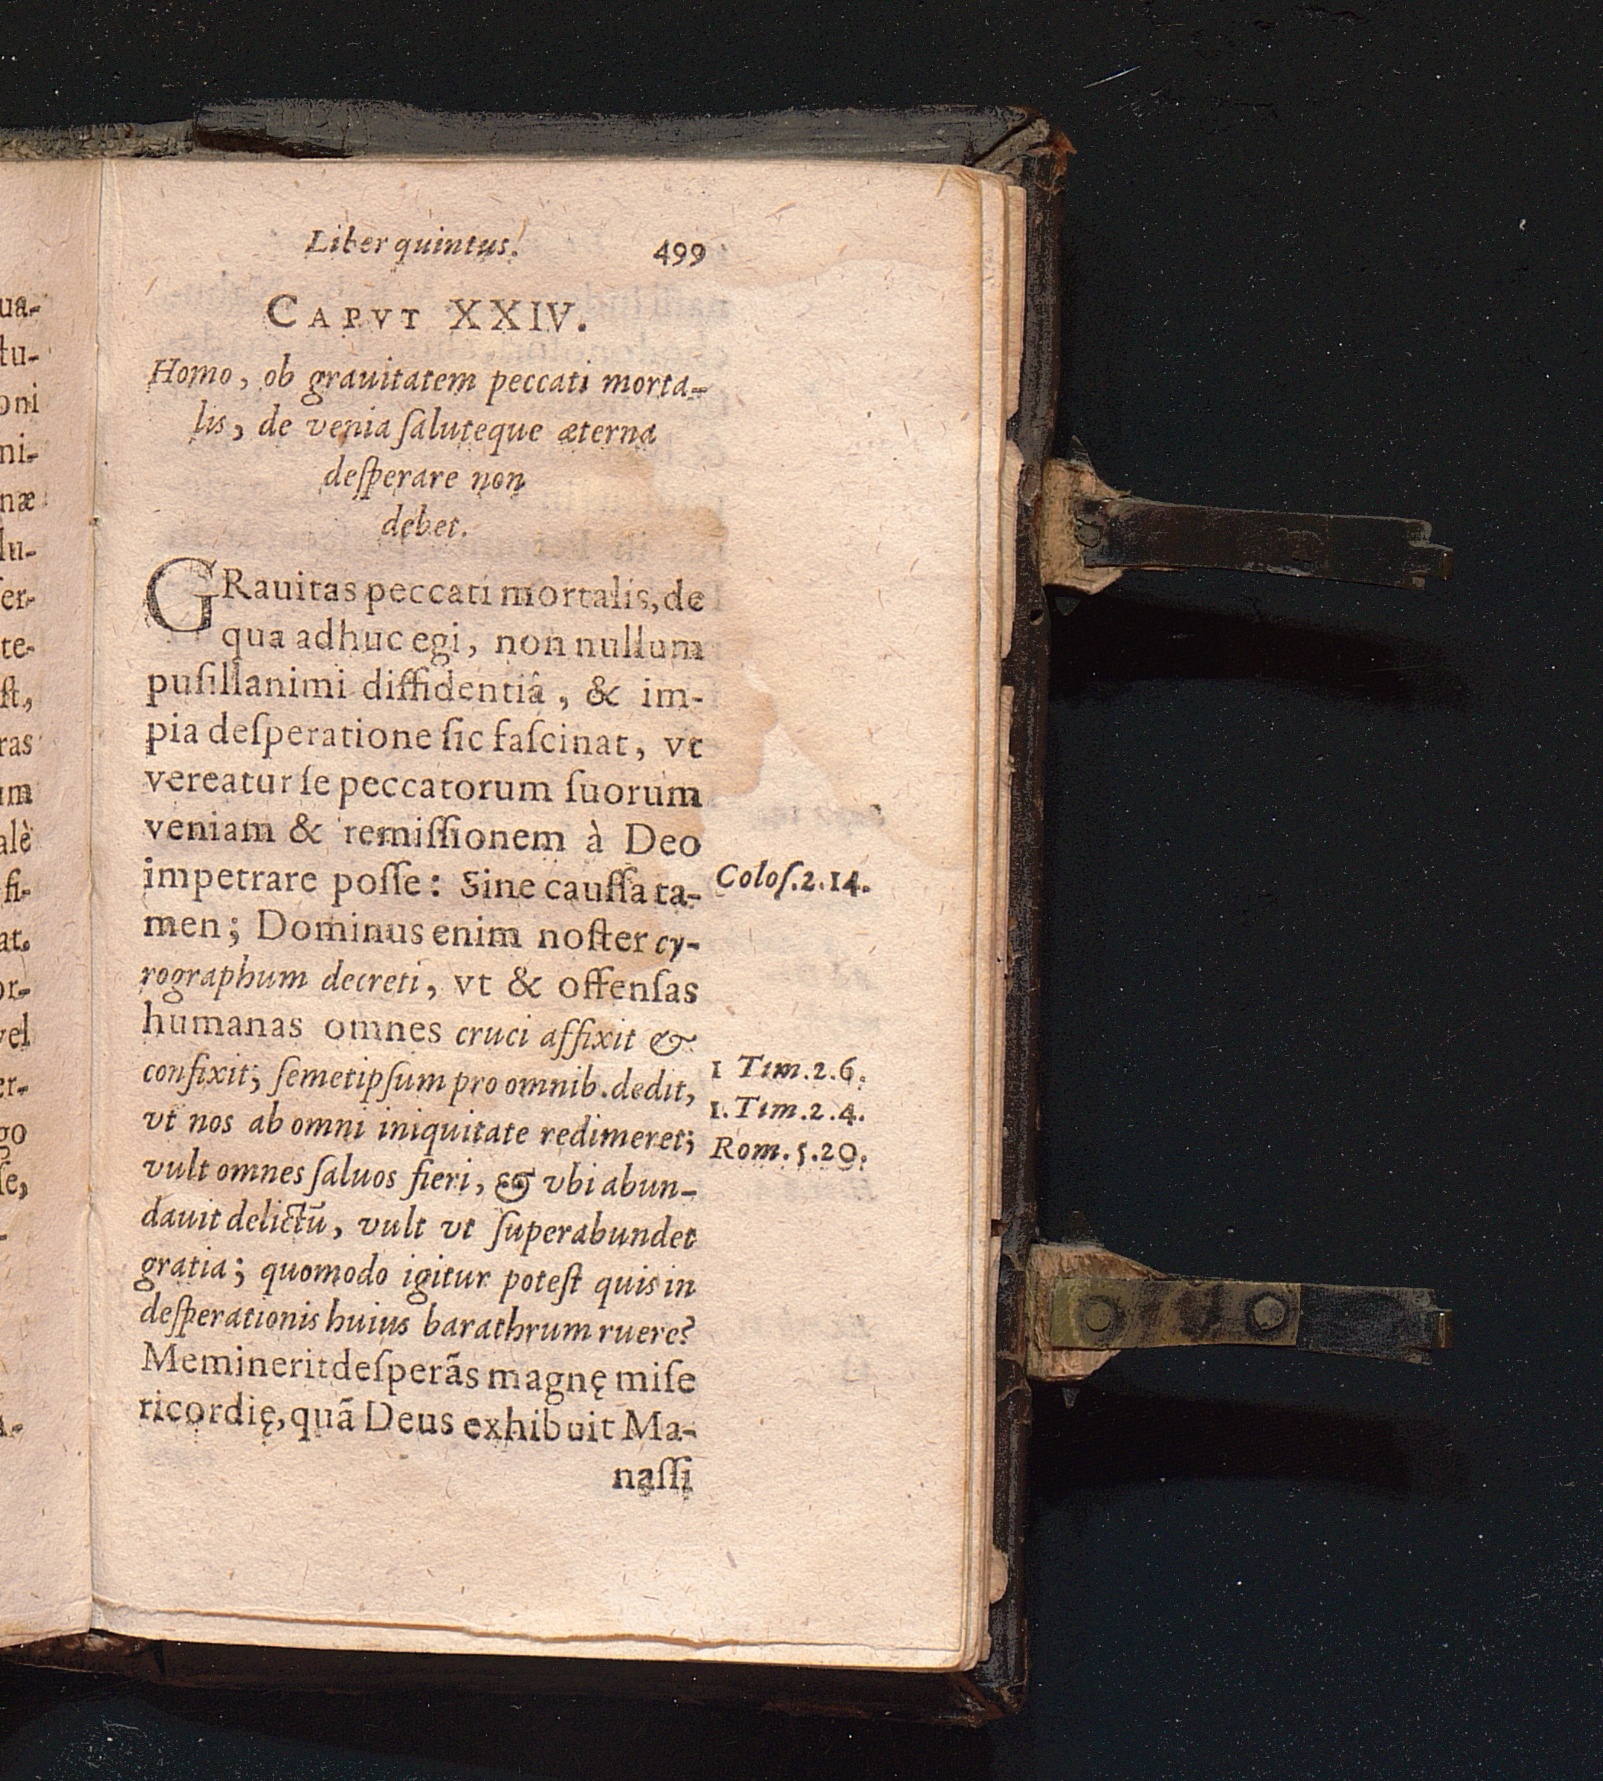 Liber quintus. 499
CAPVT XXIV.
Homo, ob grauitatem peccati morta-
lis, de venia ſaluteque æterna
deſperare non
debet.
GRauitas peccati mortalis, de
qua adhuc egi, non nullum
puſillanimi diffidentiâ, & im-
pia deſperatione ſic faſcinat, vt
vereatur ſe peccatorum ſuorum
veniam & remiſſionem à Deo
impetrare poſſe: Sine cauſſa ta-
men; Dominus enim noſter cy-
rographum decreti, vt & offenſas
humanas omnes cruci affixit &
confixit; ſemetipſum pro omnib. dedit,
vt nos ab omni iniquitate redimeret;
vult omnes ſaluos fieri, & vbi abun-
dauit delictū, vult vt ſuperabundet
gratia; quomodo igitur poteſt quis in
deſperationis huius barathrum ruere?
Meminerit deſperãs magnę miſe
ricordię, quã Deus exhibuit Ma-
naſſi
Coloſ.2.14.
1 Tim.2.6.
1. Tim.2.4.
Rom.5.20.
ua-
tu-
oni
ni-
næ
lu-
ſer-
te-
ſt,
ras
um
alè
fi-
at.
or-
vel
er-
go
ſe,